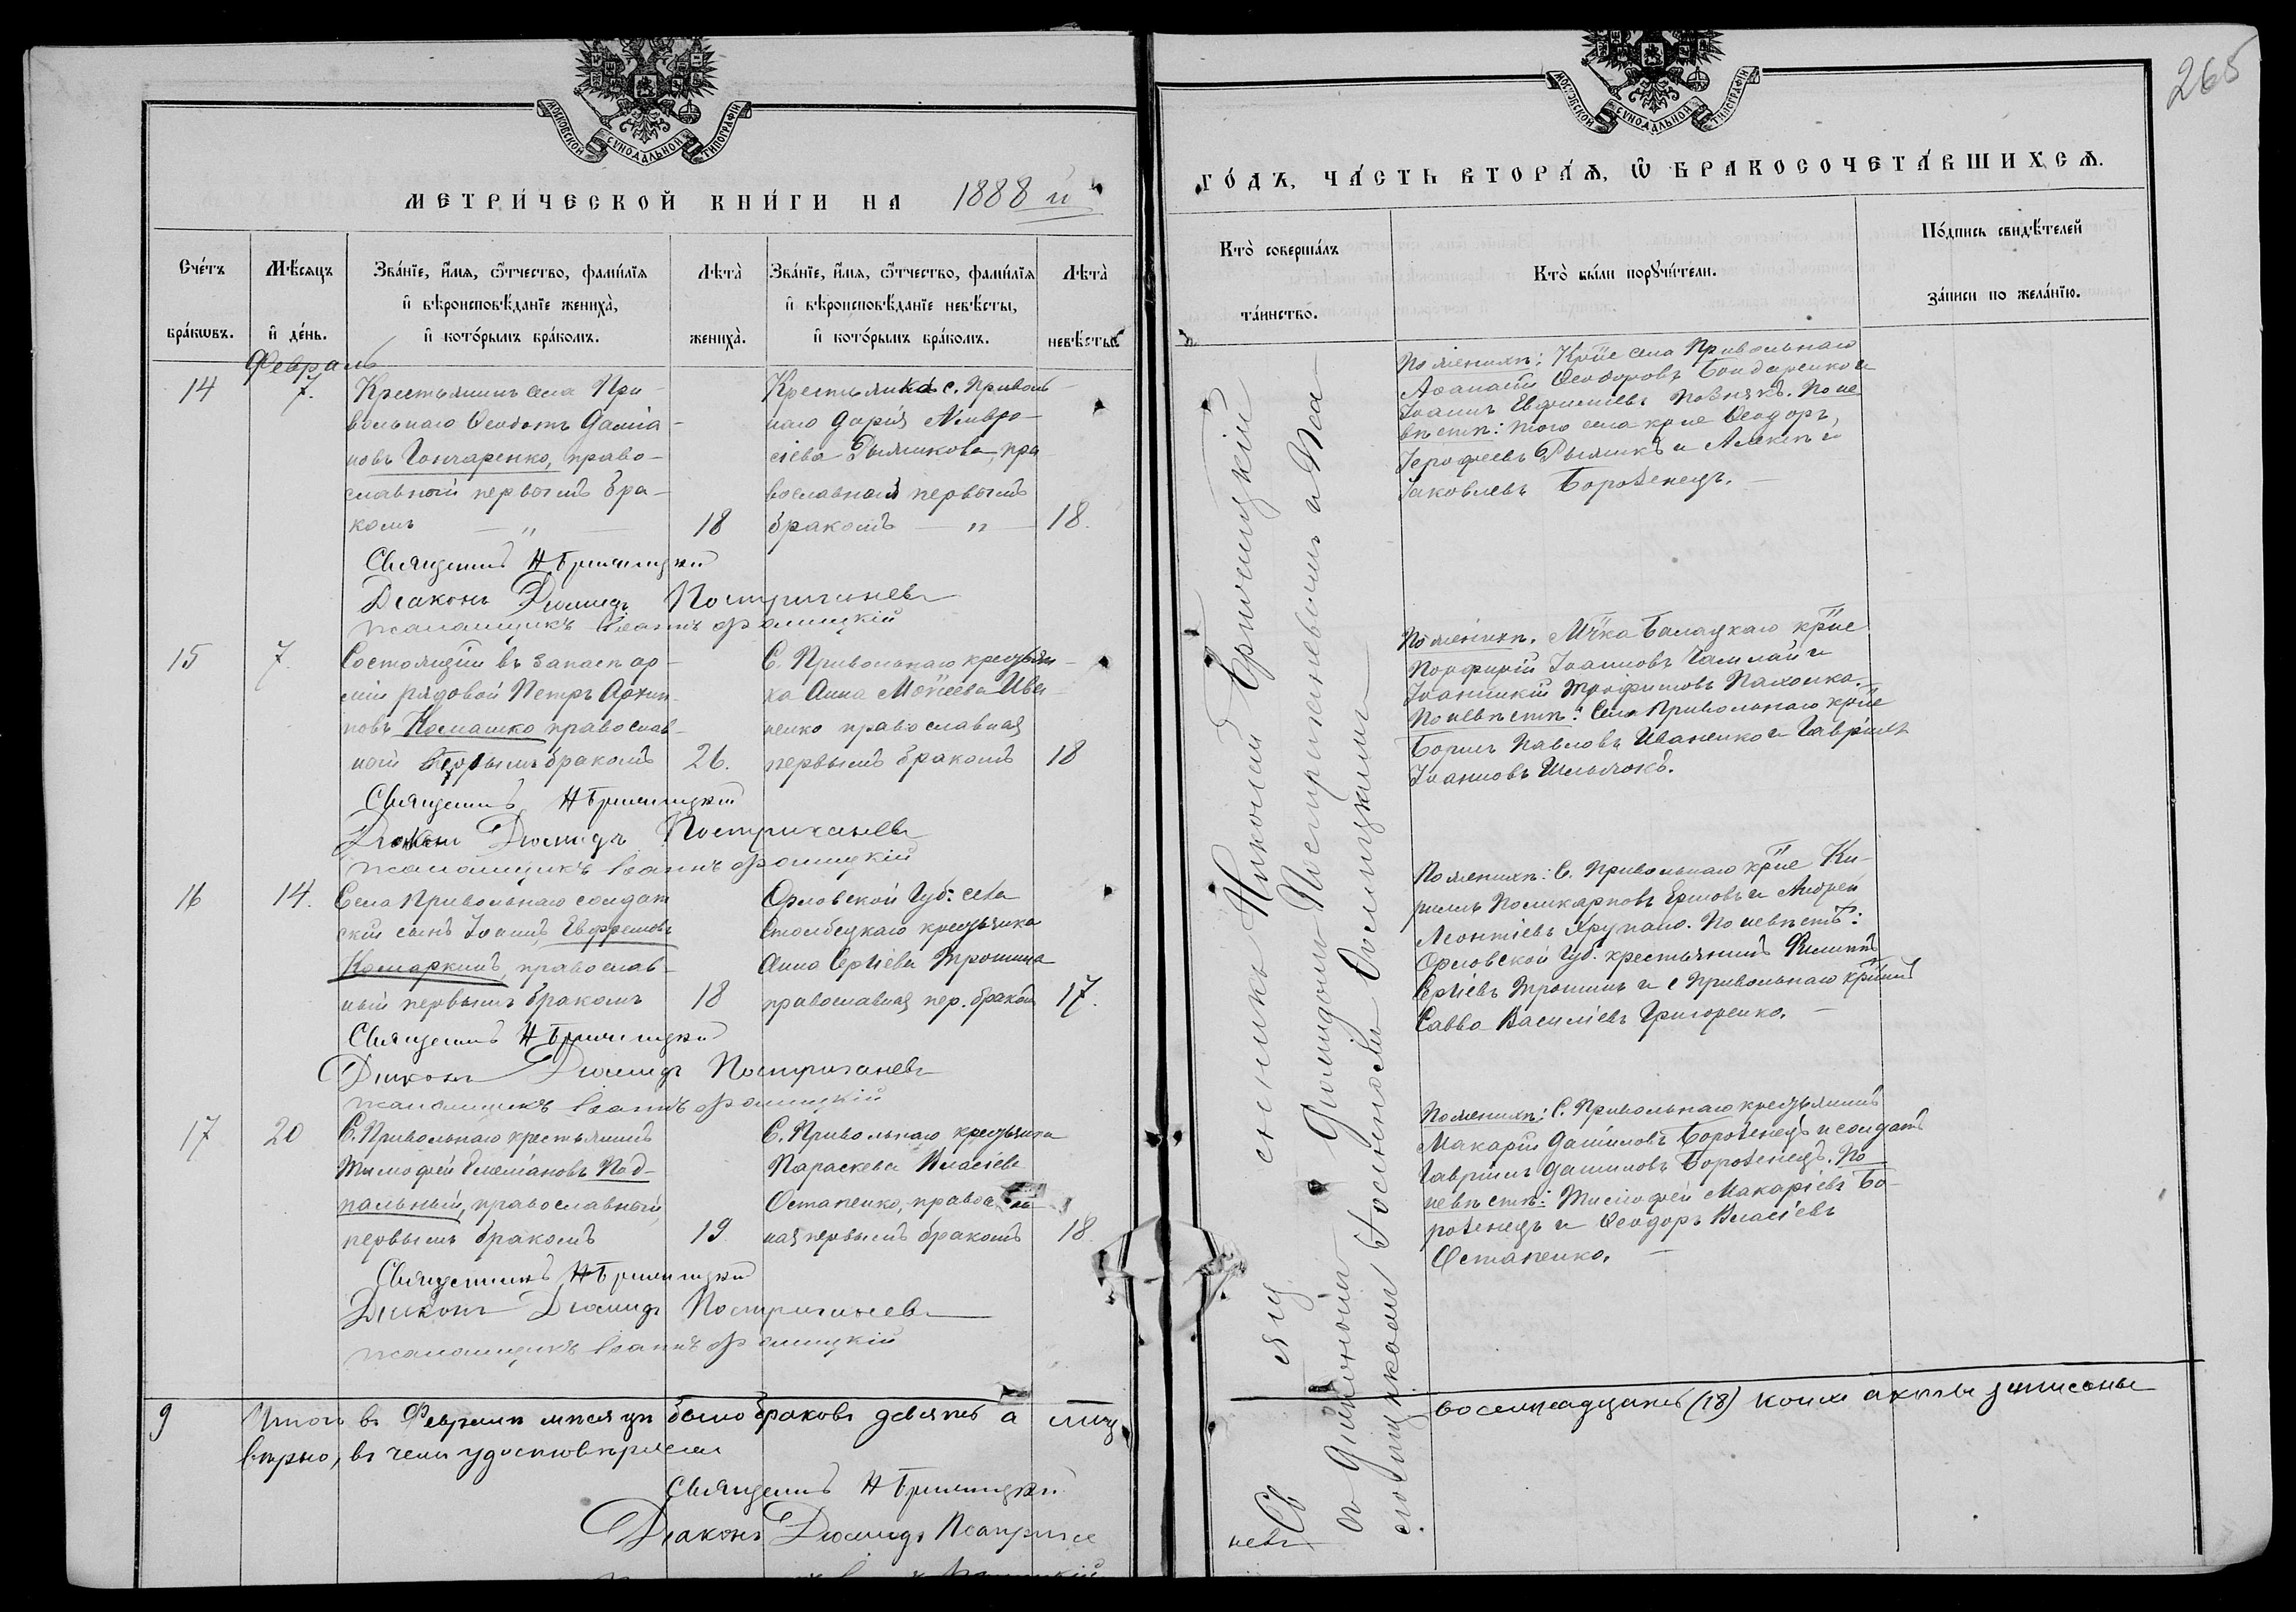 МОСКОВСКОЙ СѴНОДАЛЬНОЙ ТИПОГРАФІИ
МЕТРИ́ЧЕСКОЙ КНИ́ГИ НА 1888 й
Сче́тъ бра́кωвъ.
Мѣ́сяцъ и҆ де́нь.
Зва́нїе, и҆́мѧ, ѻ҆́тчество, фами́лїѧ
и҆ вѣроисповѣ́данїе жениха̀,
и҆ кото́рымъ бра́комъ.
Лѣта̀ жениха̀.
Зва́нїе, и҆́мѧ, ѻ҆́тчество, фами́лїѧ
и҆ вѣроисповѣ́данїе невѣ́сты,
и҆ кото́рымъ бра́комъ.
Лѣта̀ невѣ́сты.
Февраль
14
7.
Крестьянинъ села При-
вольнаго Ѳеодотъ Даміа-
новъ Гончаренко, право-
славный первымъ бра-
комъ — „ —
18
Крестьянка с. Приволь-
наго Дарія Амвро-
сіева Рымикова, пра
вославная первымъ
бракомъ — „ —
18.
Священникъ Н
Діаконъ Діомидъ Постригачевъ
псаломщикъ Іоаннъ
15
7.
Состоящій въ запасѣ ар-
міи рядовой Петръ Архип-
повъ Комашко православ-
ный первымъ бракомъ
26.
С. Привольнаго крестьян-
ка Анна Моѵсеева Ива-
ненко православная
первымъ бракомъ
18
Священникъ Н
Діаконъ Діомидъ Постригачевъ
псаломщикъ Іоаннъ
16
14.
Села Привольнаго солдат
скій сынъ Іоаннъ Евфремовъ
Комаркинъ, православ-
ный первымъ бракомъ
18
Орловской Губ: села
Столбецкаго крестьянка
Анна Сергіева Трошина
православная пер. бракомъ
17.
Священникъ Н
Діаконъ Діомидъ Постригачевъ
псаломщикъ Іоаннъ
17
20
С. Привольнаго крестьянинъ
Тимофей Под-
пальный, православный
первымъ бракомъ
19
С. Привольнаго крестьянка
Параскева Власіева
Остапенко, православ
ная первымъ бракомъ
18.
Священникъ Н
Діаконъ Діомидъ Постригачевъ
псаломщикъ Іоаннъ
9
Итого въ Февралѣ мѣсяцѣ было браковъ девять а лицъ
вѣрно, въ чемъ удостовѣряемъ
Священникъ Н
Діаконъ Діомидъ
265
МОСКОВСКОЙ СѴНОДАЛЬНОЙ ТИПОГРАФІИ
ГО́ДЪ, ЧА́СТЬ ВТОРА́Ѧ, Ѽ БРАКОСОЧЕТА́ВШИХСѦ.
Кто̀ соверша́лъ та́инство.
Кто̀ бы́ли порꙋчи́тели.
По́дпись свидѣ́телей
за́писи по жела́нїю.
Священникъ Николай
съ Діакономъ Діомидомъ Постригачевымъ и Пса-
ломщикомъ Іоанномъ
По женихѣ: Кр-не села Привольнаго
Аѳанасій Ѳеодоровъ Бондаренко и
Іоаннъ Евѳиміевъ Познякъ. По не
вѣстѣ: того села кр-не Ѳеодоръ
Іероѳеевъ Рымикъ и Алексѣй
Іаковлевъ Боровенецъ. —
По женихѣ. М-ка Балацкаго кр-не
Порфирій Іоанновъ Гамлай и
Іоанникій Трофимовъ Пахолка. —
По невѣстѣ: Села Привольнаго кр-не
Борисъ Павловъ Иваненко и Гавріилъ
Іоанновъ
По женихѣ: С. Привольнаго кр-не Ки-
риллъ Поликарповъ Ершовъ и Андрей
Леонтіевъ Хрупало. По невѣстѣ:
Орловской Губ. крестьянинъ Филиппъ
Сергіевъ Трошинъ и с Привольнаго кр-нинъ
Савва Василіевъ Григоренко. —
По женихѣ: С. Привольнаго крестьянинъ
Макарій Даниловъ Боровенецъ и солдатъ
Гавріилъ Даниловъ Боровенецъ. По
невѣстѣ: Тимофей Макаріевъ Бо-
ровенецъ и Ѳеодоръ Власіевъ
Остапенко. —
восемнадцать (18) коихъ акты записаны